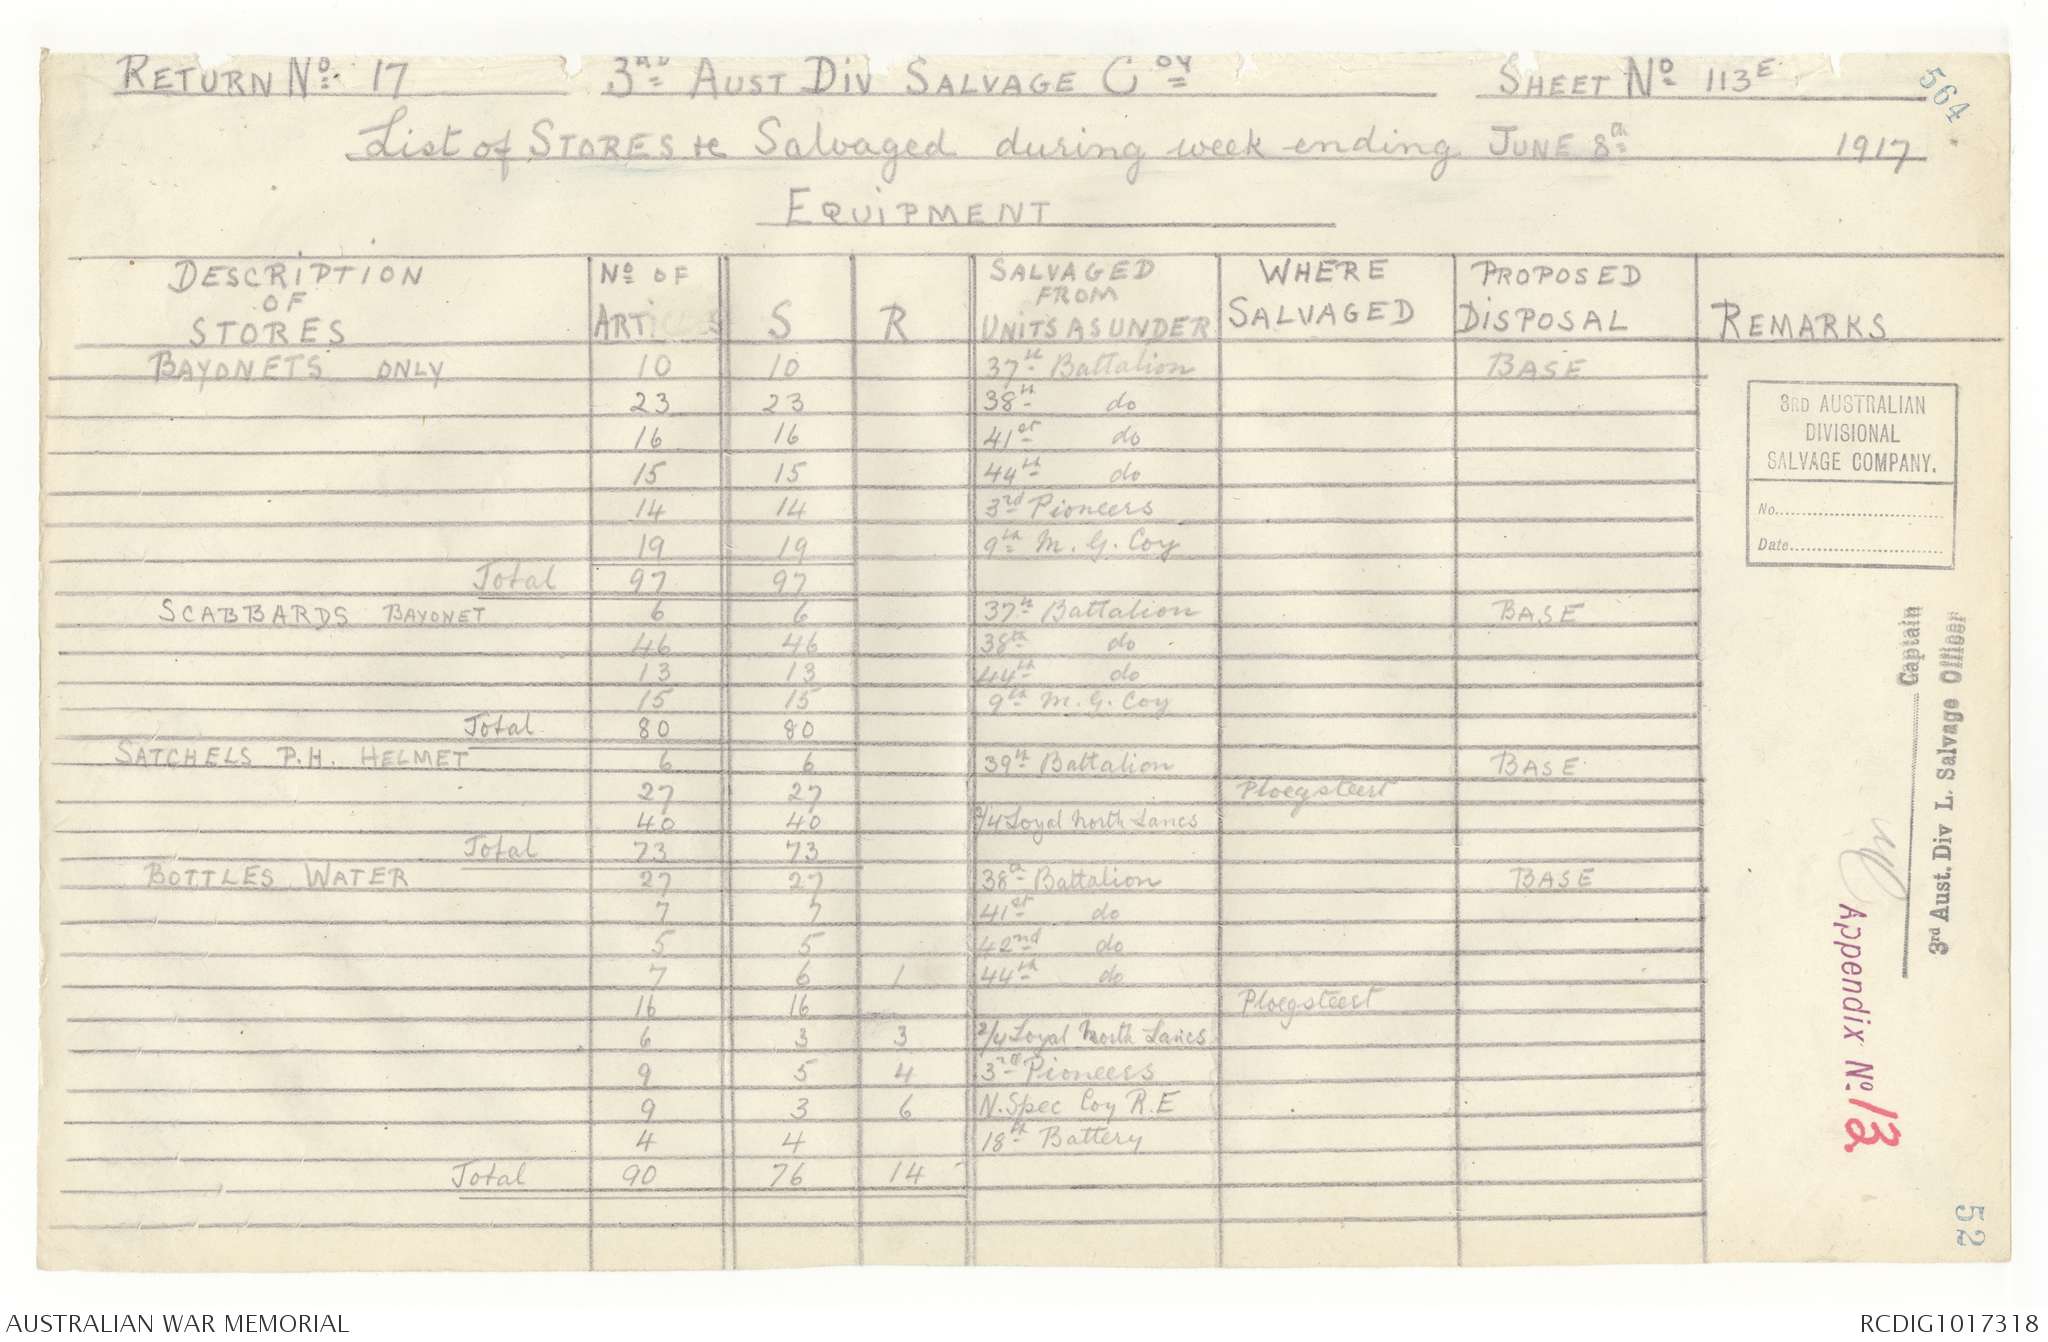 RETURN No. 17 3RD AUST DIV SALVAGE COY SHEET No 113E
564
List of STORES &c Salvaged during week ending JUNE 8th 1917
EQUIPMENT
DESCRIPTION OF STORES No OF ARTICLES S R SALVAGED FROM UNITS AS UNDER WHERE SALVAGED PROPOSED DISPOSAL REMARKS
BAYONETS ONLY 10 10 37th Battalion BASE
23 23 38th do
16 16 41st do
15 15 44th do
14 14 3rd Pioneers
19 19 9th M. G. Coy
Total 97 97
SCABBARDS BAYONET 6 6 37th Battalion BASE
46 46 38th do
13 13 44th do
15 15 9th M. G. Coy
Total 80 80
SATCHELS P.H. HELMET 6 6 39th Battalion BASE
27 27 Ploegsteert
40 40 2/4 Loyal North Lancs
Total 73 73
BOTTLES WATER 27 27 38th Battalion BASE
7 7 41st do
5 5 42nd do
7 6 1 44th do
16 16 Ploegsteert
6 3 3 2/4 Loyal North Lancs
9 5 4 3rd Pioneers
9 3 6 N. Spec Coy R.E
4 4 18th Battery
Total 90 76 14
3RD AUSTRALIAN
DIVISIONAL
SALVAGE COMPANY.
No.
Date
Captain
3rd Aust. Div L. Salvage Officer
Appendix No. 13
52
AUSTRALIAN WAR MEMORIAL RCDIG1017318